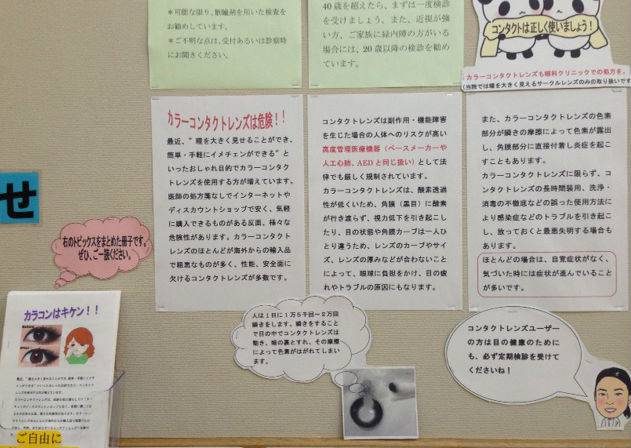 *可能な限り、散瞳剤を用いた検査を
お勧めしています。
*ご不明な点は、受付あるいは診察時
にお聞きください。
40歳を超えたら、まずは一度検診
を受けましょう。また、近視が強
い方、ご家族に緑内障の方がいる
場合には、20歳以降の検診を勧め
ています。
コンタクトは正しく使いましょう!
カラーコンタクトレンズも眼科クリニックでの処方を。
(当院では瞳を大きく見えるサークルレンズのみの取り扱いです
カラーコンタクトレンズは危険!!
最近、"瞳を大きく見せることができ、
簡単・手軽にイメチェンができる"と
いったおしゃれ目的でカラーコンタク
トレンズを使用する方が増えています。
医師の処方箋なしでインターネットや
ディスカウントショップで安く、気軽
に購入できるものがある反面、様々な
危険性があります。カラーコンタクト
レンズのほとんどが海外からの輸入品
で粗悪なものが多く、性能、安全面に
欠けるコンタクトレンズが多数です。
コンタクトレンズは副作用・機能障害
を生じた場合の人体へのリスクが高い
高度管理医療機器(ペースメーカーや
人工心肺、AEDと同じ扱い)として法
律でも厳しく規制されています。
カラーコンタクトレンズは、酸素透過
性が低いため、角膜(黒目)に酸素
が行き渡らず、視力低下を引き起こし
たり、目の状態や角膜カーブは一人ひ
とり違うため、レンズのカーブやサイ
ズ、レンズの厚みなどが合わないこと
によって、眼球に負担をかけ、目の疲
れやトラブルの原因にもなります。
また、カラーコンタクトレンズの色素
部分が瞬きの摩擦によって色素が露出
し、角膜部分に直接付着し炎症を起こ
すこともあります。
カラーコンタクトレンズに限らず、コ
ンタクトレンズの長時間装用、洗浄・
消毒の不徹底などの誤った使用方法に
より感染症などのトラブルを引き起こ
し、放っておくと最悪失明する場合も
あります。
ほとんどの場合は、自覚症状がなく、
気づいた時には症状が進んでいること
が多いです。
せ
右のトピックスをまとめた冊子です。
ぜひ、ご一読ください。
カラコンはキケン!!
ご自由に
人は1日に1万5千回~2万回
瞬きをします。瞬きをすること
で目の中でコンタクトレンズは
動き、瞼の裏とすれ、その摩擦
によって色素がはがれてしまい
ます。
コンタクトレンズユーザー
の方は目の健康のために
も、必ず定期検診を受けて
くださいね!